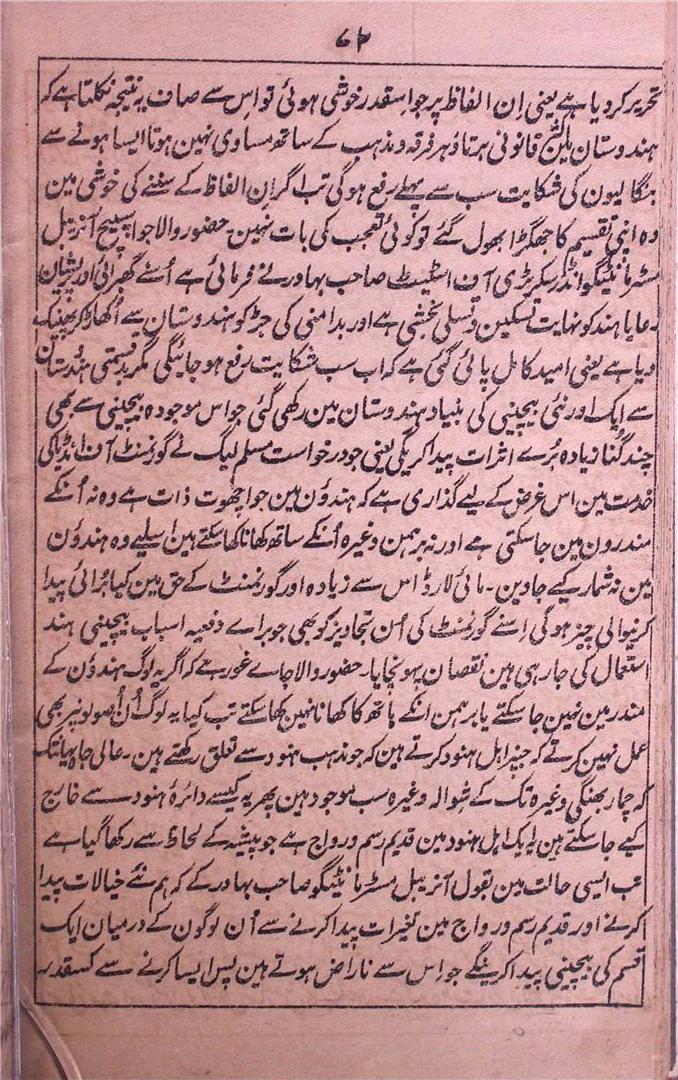 ۷۲
تحریر کردیا ہے یعنی اِن الفاظ پر جو اسقدر خوشی ہوئی تو اس سے صاف یہ نتیجہ نکلتا ہے کہ
ہندوستان میں قانونی برتاؤ ہر فرقہ و مذہب کے ساتھ مساوی نہین ہوتا ایسا ہونے سے
بنگالیون کی شکایت سب سے پہلے رفع ہوگی تب اگر اِن الفاظ کے سننے کی خوشی مین
وہ اپنی تقسیم کا جھگڑا بھول گئے تو کوئی تعجب کی بات نہین۔ حضور والا جو اسپیچ آنریبل
مسٹر مانٹیگو انڈر سکرٹری آف اسٹیٹ صاحب بہادر نے فرمائی ہے اُسنے گھبرائی اور پریشان
رعایا ہند کو نہایت تسکین و تسلی بخشی ہے اور بدامنی کی جڑ کو ہندوستان سے اُکھاڑ کر پھینک
دیا ہے یعنی امید کامل پائی گئی ہے کہ اب سب شکایت رفع ہو جائیگی مگر بدقسمتی ہندوستان
سے ایک اور نئی بیچینی کی بنیاد ہندوستان مین رکھی گئی جو اس موجودہ بیچینی سے بھی
چند گُنا زیادہ بُرے اثرات پیدا کریگی یعنی جو درخواست مسلم لیگ نے گورنمنٹ آف انڈیا کی
خدمت مین اس غرض کے لیے گذاری ہے کہ ہندؤن مین جو اچھوت ذات ہے وہ نہ اُنکے
مندرون مین جا سکتی ہے اور نہ برہمن وغیرہ اُنکے ساتھ کھانا کھا سکتے ہین اسلیے وہ ہندؤن
مین نہ شمار کیے جاوین۔ مائی لارڈ اس سے زیادہ اور گورنمنٹ کے حق مین کیا بُرائی پیدا
کرنیوالی چیز ہوگی اِسنے گورنمنٹ کی اُن تجاویز کو بھی جو براے دفعیہ اسباب بیچینی ہند
استعمال کی جا رہی ہین نقصان پہونچایا۔ حضور والا جاے غور ہے کہ اگر یہ لوگ ہندؤن کے
مندر مین نہین جا سکتے یا برہمن انکے ہاتھ کا کھانا نہین کھا سکتے تب کیا یہ لوگ اُن اُصولونپر بھی
عمل نہین کرتے کہ جنپر اہل ہنود کرتے ہین کہ جو مذہب ہنود سے تعلق رکھتے ہین۔ عالی جاہ یہانتک
کہ چمار بھنگی وغیرہ تک کے شوالہ وغیرہ سب موجود ہین پھر یہ کیسے دائرۂ ہنود سے خارج
کیے جا سکتے ہین یہ ایک اہل ہنود مین قدیم رسم و رواج ہے جو پیشہ کے لحاظ سے رکھا گیا ہے
تب ایسی حالت مین بقول آنریبل مسٹر مانٹیگو صاحب بہادر کے کہ ہم نئے خیالات پیدا
کرنے اور قدیم رسم و رواج مین تغیرات پیدا کرنے سے اُن لوگون کے درمیان ایک
قسم کی بیچینی پیدا کرینگے جو اِس سے ناراض ہوتے ہین پس ایسا کرنے سے کسقدر